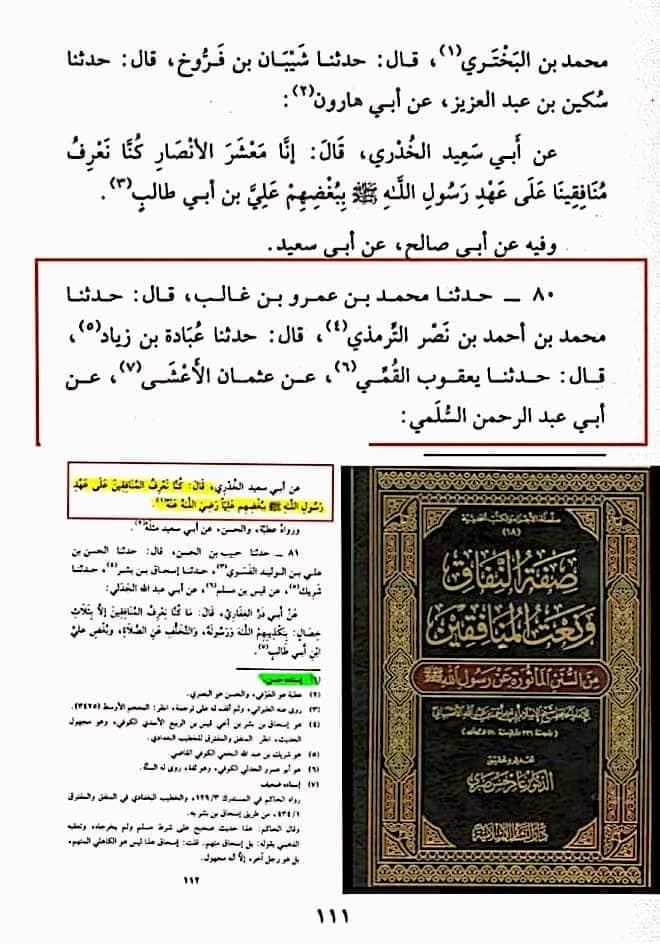 محمد بن البَخْتَري(١)، قال: حدثنا شَيْبَان بن فَرُّوخ، قال: حدثنا
سُكين بن عبد العزيز، عن أبي هارون(٢):
عن أَبي سَعِيد الخُدْري، قَالَ: إنَّا مَعْشَرَ الأنْصَارِ كُنَّا نَعْرِفُ
مُنَافِقِينَا عَلَى عَهْدِ رَسُولِ اللَّهِ ﷺ بِبُغْضِهِمْ عَلِيَّ بن أبي طالبٍ(٣).
وفيه عن أبي صالح، عن أبي سعيد.
٨٠ ــ حدثنا محمد بن عمرو بن غالب، قال: حدثنا
محمد بن أحمد بن نَصْر التِّرمذي(٤)، قال: حدثنا عُبَادة بن زياد(٥)،
قال: حدثنا يعقوب القُمِّي(٦)، عن عثمان الأَعْشَى(٧)، عن
أبي عبد الرحمن السُّلَمي:
عن أبي سعيد الخُدْري، قَالَ: كُنَّا نَعْرِفُ المُنَافِقِينَ عَلَى عَهْدِ
رَسُولِ اللَّهِ ﷺ بِبُغْضِهِم عَلِيَّاً رَضِيَ اللَّهُ عَنْهُ(١).
ورواه عطيَّة، والحسن، عن أبي سعيد مثلَهُ(٢).
٨١ ــ حدثنا حبيب بن الحسن، قال: حدثنا الحسن بن
علي بن الوليد الفَسَوي(٣)، حدثنا إسحاق بن بشر(٤)، حدثنا
شريك(٥)، عن قيس بن مسلم(٦)، عن أبي عبد الله الجَدَلي:
عَنْ أبي ذَرِّ الغِفَاري، قَالَ: مَا كُنَّا نَعْرِفُ المُنَافِقِينَ إلاَّ بِثَلاَثِ
خِصَالٍ: بِتَكْذِيبِهِمُ اللَّهَ وَرَسُولَهُ، وَالتَّخَلُّفِ عَنِ الصَّلاَةِ، وبُغْضِ عَليِّ
ابْنِ أبي طَالبٍ(٧).
(١) إسناده حسن.
(٢) عطية هو العَوْفي، والحسن هو البصري.
(٣) روى عنه الطبراني، ولم أقف له على ترجمة، انظر: المعجم الأوسط (٣٤٢٥)
(٤) هو إسحاق بن بشر بن أخي قيس بن الربيع الأسدي الكوفي، وهو مجهول
الحديث، انظر: المتفق والمفترق للخطيب البغدادي.
(٥) هو شريك بن عبد الله النخعي الكوفي القاضي.
(٦) هو أبو عمرو الجدلي الكوفي، وهو ثقة، روى له الستَّة.
(٧) إسناده ضعيف
رواه الحاكم في المستدرك ١٢٩/٣، والخطيب البغدادي في المتفق والمفترق
٤٣٤/١، من طريق إسحاق بن بشر به.
وقال الحاكم: هذا حديث صحيح على شرط مسلم ولم يخرجاه، وتعقبه
الذهبي بقوله: بل إسحاق متهم. قلت: إسحاق هذا ليس هو الكاهلي المتهم،
بل هو رجل آخر، إلاَّ أنه مجهول.
١١٢
(١٨)
صفة النفاق
ونعت المنافقين
من السنن المأثورة عن رسول الله ﷺ
الدكتور عامر حسن صبري
دار البشائر الإسلامية
١١١